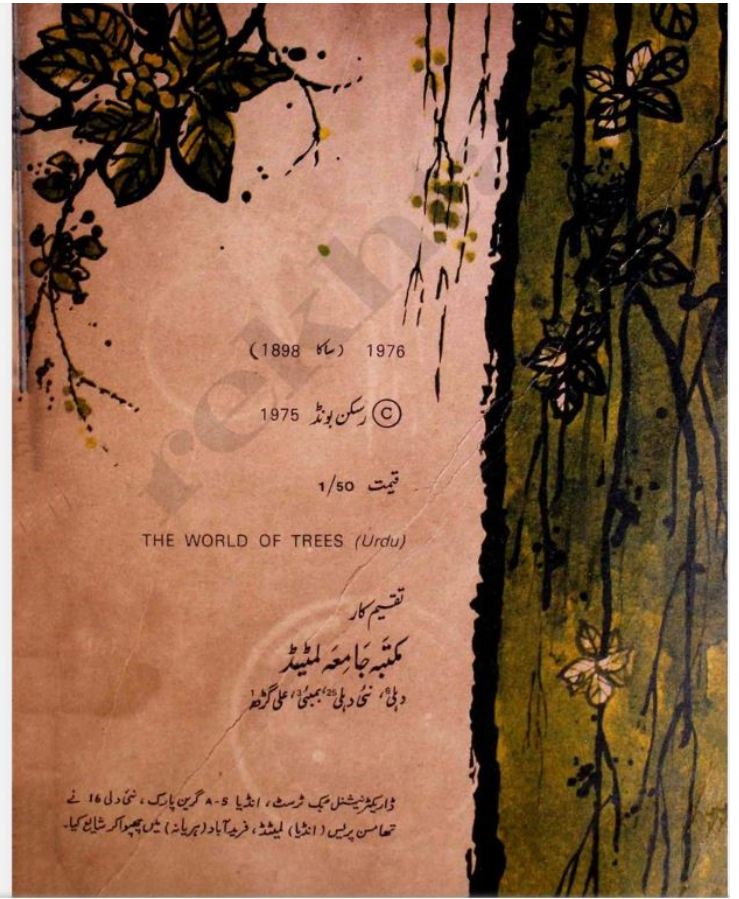 1976 (ساکا 1898)
© رسکن بونڈ 1975
قیمت 1/50
THE WORLD OF TREES (Urdu)
تقسیم کار
مکتبہ جامعہ لمٹیڈ
دہلی6، نئی دہلی25، بمبئی3، علی گڑھ1
ڈاریکٹر نیشنل بک ٹرسٹ، انڈیا A-5 گرین پارک، نئی دلی 16 نے
تھامسن پریس (انڈیا) لمیٹڈ، فرید آباد (ہریانہ) میں چھپوا کر شایع کیا۔
rekh